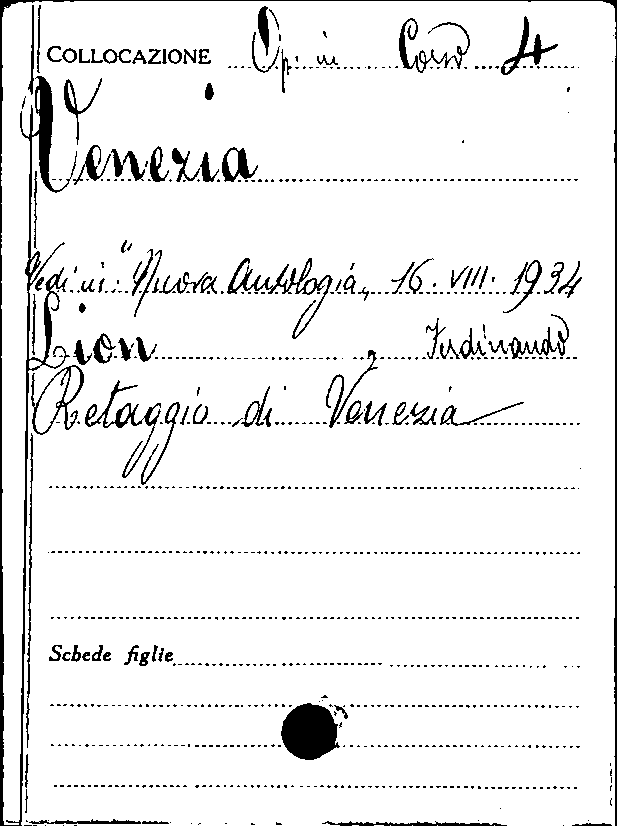 COLLOCAZIONE Op. in Corso 4
Venezia
Vedi in: "Nuova Antologia„ 16. VIII. 1934
Lion Ferdinando
Retaggio di Venezia
Schede figlie